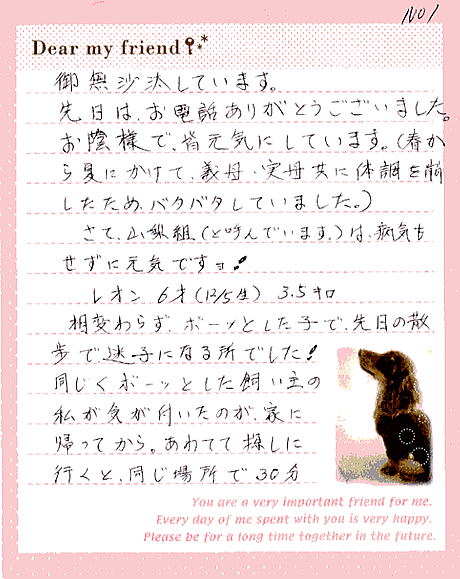 NO1
Dear my friend
御無沙汰しています。
先日は、お電話ありがとうございました。
お陰様で、皆元気にしています。(春か
ら夏にかけて、義母・実母共に体調を崩
したため、バタバタしていました。)
さて、山梨組(と呼んでいます。)は、病気も
せずに元気ですョ!
レオン 6才(12/5生) 3.5キロ
相変わらず、ボーッとした子で、先日の散
歩で迷子になる所でした!
同じくボーッとした飼い主の
私が気が付いたのが、家に
帰ってから。あわてて探しに
行くと、同じ場所で30分
You are a very important friend for me.
Every day of me spent with you is very happy.
Please be for a long time together in the future.